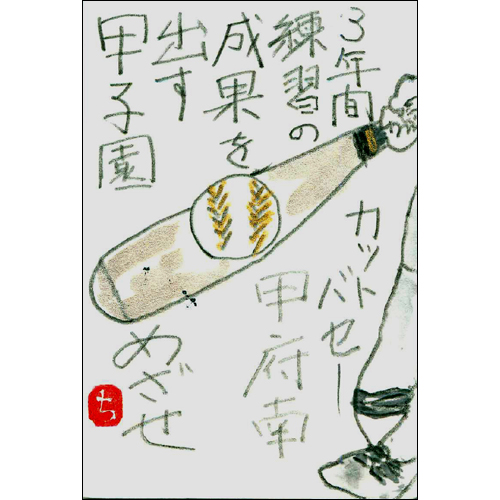 3年間
練習の
成果を
出す
甲子園
カットバセー
甲府南
めざせ
ち